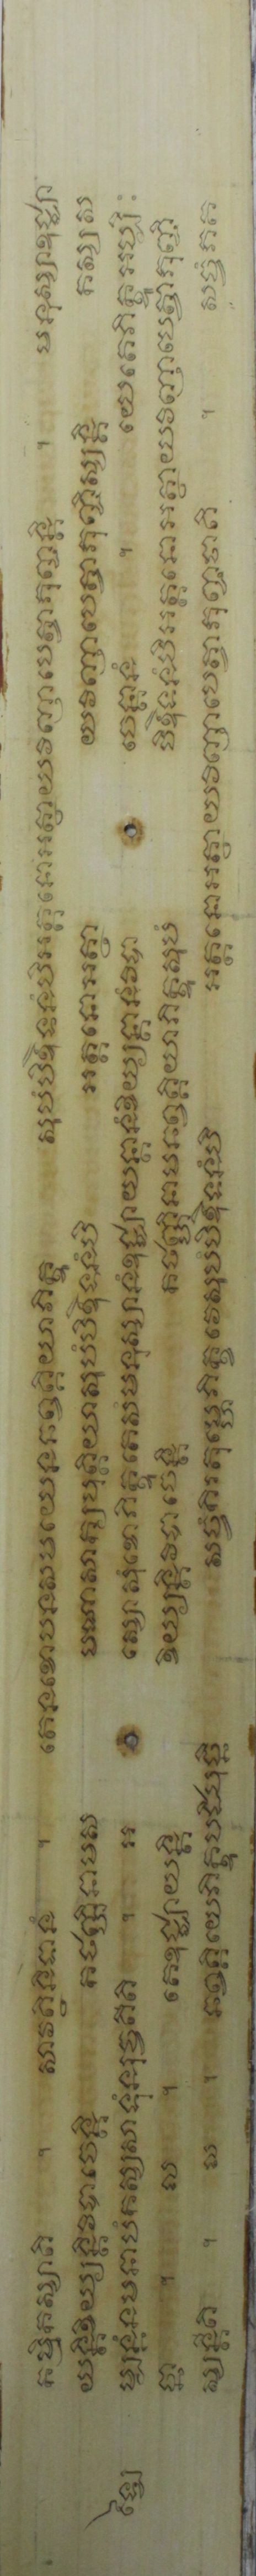 កម្មិកស្សាតិ ។ សាវត្ថិនិទានំ ។ តេនខោបនសមយេនឆព្វគ្គិយាភិក្ខូ សូបំបិឱទនំបិអត្តនោអត្ថាយវិញ្ញាបេត្វាភុញ្ជន្តិ ។ មនុស្សាឧជ្ឈា
យន្តិខិយ្យន្តិវិបាចេន្តិ កថញ្ហិនាមស មណាសាក្យបុត្តិយាសូបំបិឱទនំបិ អត្តនោអត្ថា យវិញ្ញាបេត្វាភុញ្ជិស្សន្តិ កស្សស
ម្បន្នំនមនាបំកស្សសាទុំនរុច្ចតីតិ ។ អ ស្សោសុំខោភិក្ខូតេសំមនុស្សានំឧជ្ឈាយន្តានំខិយ្យន្តានំវិបា ចេន្តានំ ។ យេតេភិក្ខូអប្បិ
ច្ឆា ។ ប ។ តេឧជ្ឈាយន្តិ ខិយ្យន្តិវិបាចេន្តិ កថញ្ហិនាមឆព្វគ្គិយាភិក្ខូសូបំ បិឱទនំបិអត្តនោអត្ថាយវិញ្ញាបេត្វាភុញ្ជិ
ស្សន្តីតិ ។ ប ។ ឆព្វគ្គិយេភិក្ខូបដិបុច្ឆិ សច្ចំកិរតុម្ហេភិក្ខវេសូបំបិឱទនំបិ អត្តនោអត្ថាយវិញ្ញាបេត្វាភុញ្ជថាតិ ។ សច្ចំភគ